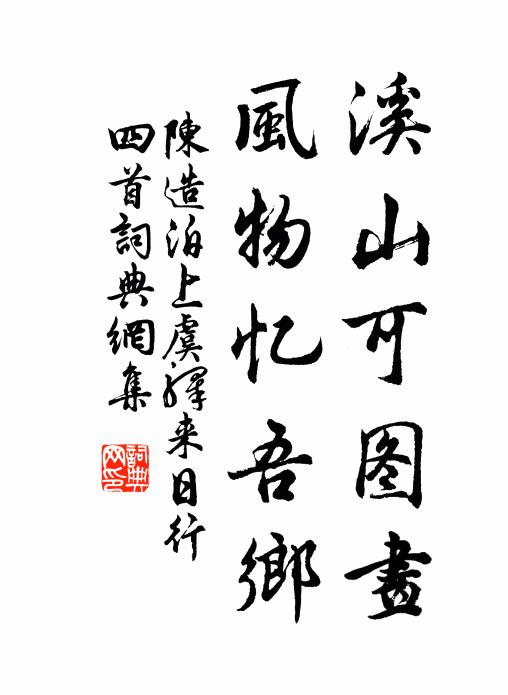 溪山可图畫
風物忆吾鄉
陳造泊上虞驛来日行
四首詞典網集
詞典
网印